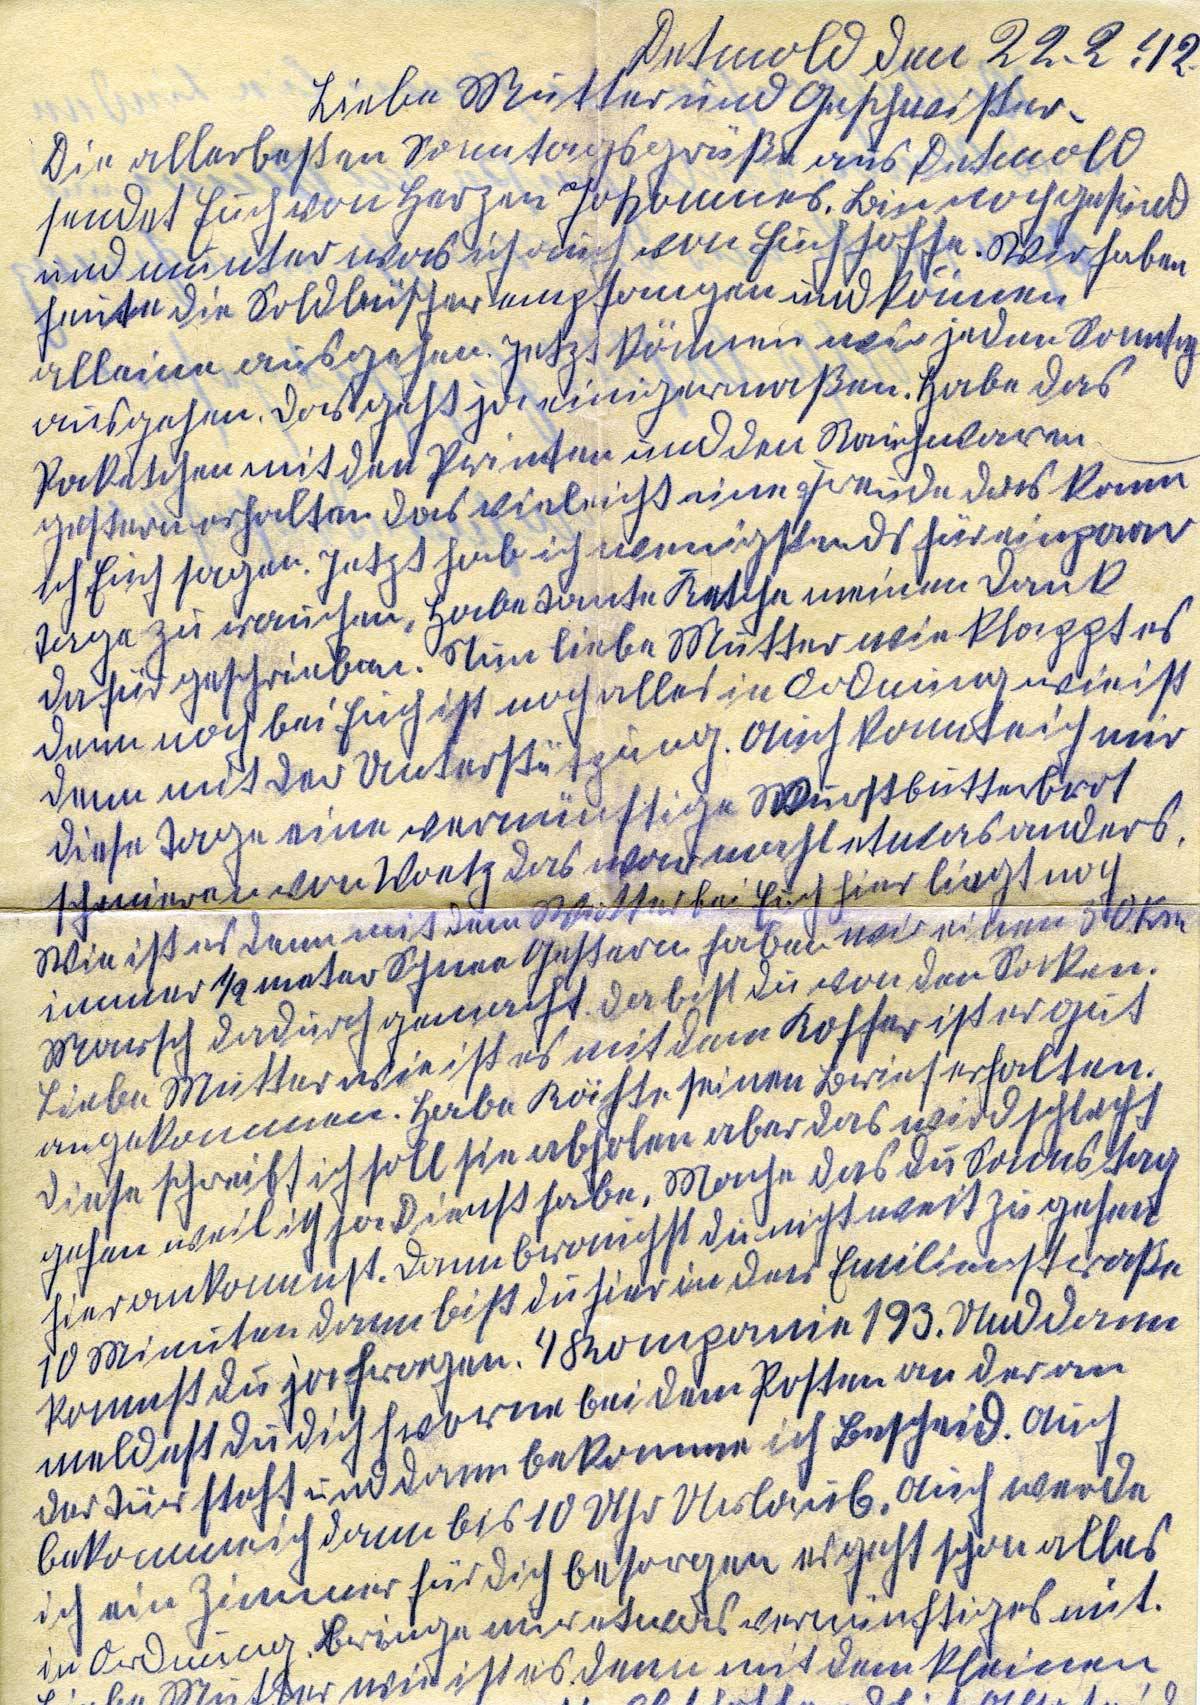 Detmold den 22.2.42.
Liebe Mutter und Geschwister.
Die allerbesten Sonntagsgrüße aus Detmold
sendet Euch von Herzen Johannes. Bin noch gesund
und munter was ich auch von Euch hoffe. Wir haben
heute die Soldbücher empfangen und können
alleine ausgehen. Jetzt können wir jeden Sonntag
ausgehen. Das geht ja einigermaßen. Habe das
Paketchen mit den Printen und den Rauchwaren
gestern erhalten das vieleicht eine Freude das kann
ich Euch sagen. Jetzt hab ich wenigstends für ein paar
Tage zu rauchen. Habe Tante Ketche meinen Dank
dafür geschrieben. Nun liebe Mutter wie klappt es
denn noch bei Euch ist noch alles in Ordnung wie ist
denn mit der Unterstützung. Auch konnte ich mir
diese Tage eine vernünftige Wurstbutterbrot
schmieren von Woetz das war mahl etwas anders.
Wie ist es denn mit dem Wetter bei Euch hier liegt noch
immer 1/2 meter Schnee Gestern haben wir einen 30 Km
Marsch dadurch gemacht. da bist du von den Socken.
Liebe Mutter wie ist es mit dem Koffer ist er gut
angekommen. Habe seinen Brief erhalten.
Diese schreibt ich soll sie abholen aber das wird schlecht
gehen weil ich ja Dienst habe. Mache das du Samstag
hier ankommst. Dann brauchst du nicht weit zu gehen
10 Minuten dann bist du hier in der Emilienstraße
kannst du ja fragen. 4 Kompanie 193. Und dann
meldest du dich vorne bei dem Posten an der an
der Tür steht und dann bekomme ich Bescheid. Auch
bekomme ich dann bis 10 Uhr Urlaub. Auch werde
ich ein Zimmer für dich besorgen es geht schon alles
in Ordnung. Bringe mir etwas vernünftiges mit.
Liebe Mutter wie ist es denn mit dem kleinen